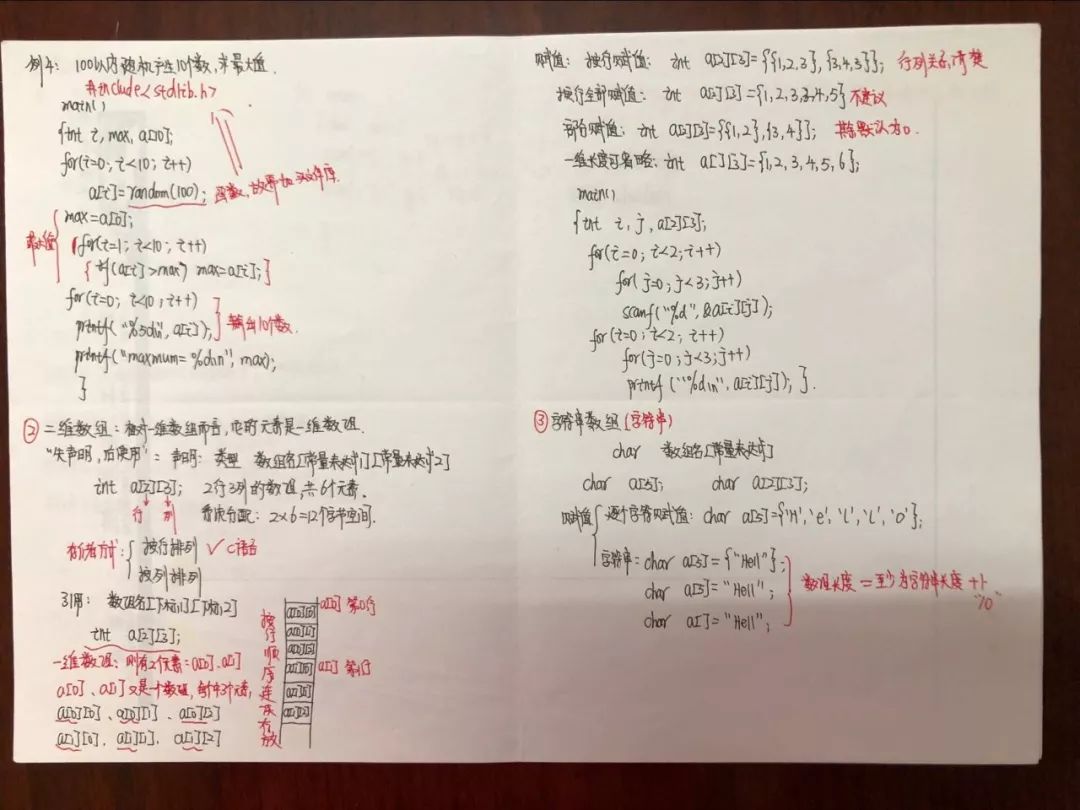 例4：100以内随机产生10个数，求最大值.
#include<stdlib.h>
main()
{int i, max, a[10];
for(i=0; i<10; i++)
a[i]=random(100); 函数，故要加头文件库.
max=a[0];
求最大值
for(i=1; i<10; i++)
{ if(a[i]>max) max=a[i]; }
for(i=0; i<10; i++)
printf("%5d\n", a[i]); 输出10个数.
printf("maxmum=%d\n", max);
}
② 二维数组：相对一维数组而言，它的元素是一维数组.
"先声明，后使用"：声明：类型 数组名[常量表达式1][常量表达式2]
int a[2][3]; 2行3列的数组，共6个元素.
行 列 系统分配：2×6=12个字节空间.
存储方式：{按行排列 ✓C语言
按列排列
引用：数组名[下标1][下标2]
int a[2][3];
一维数组：则有2个元素：a[0]、a[1]
a[0]、a[1]又是一个数组，每个有3个元素，
a[0][0]、a[0][1]、a[0][2]
a[1][0]、a[1][1]、a[1][2]
按行顺序连续存放
a[0][0] a[0] 第0行
a[0][1]
a[0][2]
a[1][0] a[1] 第1行
a[1][1]
a[1][2]
赋值：按行赋值：int a[2][3]={{1,2,3},{3,4,3}}; 行列关系清楚
按行全部赋值：int a[2][3]={1,2,3,3,4,5} 不建议
部分赋值：int a[2][3]={{1,2},{3,4}}; 其余默认为0.
一维长度可省略：int a[][3]={1,2,3,4,5,6};
main()
{int i, j, a[2][3];
for(i=0; i<2; i++)
for(j=0; j<3; j++)
scanf("%d", &a[i][j]);
for(i=0; i<2; i++)
for(j=0; j<3; j++)
printf("%d\n", a[i][j]); }.
③ 字符串数组(字符串)
char 数组名[常量表达式]
char a[5]; char a[2][3];
赋值{逐个字符赋值：char a[5]={'H','e','l','l','o'};
字符串：char a[5]={"Hell"};
char a[5]="Hell";
char a[]="Hell";
数组长度=至少为字符串长度+1
"\0"